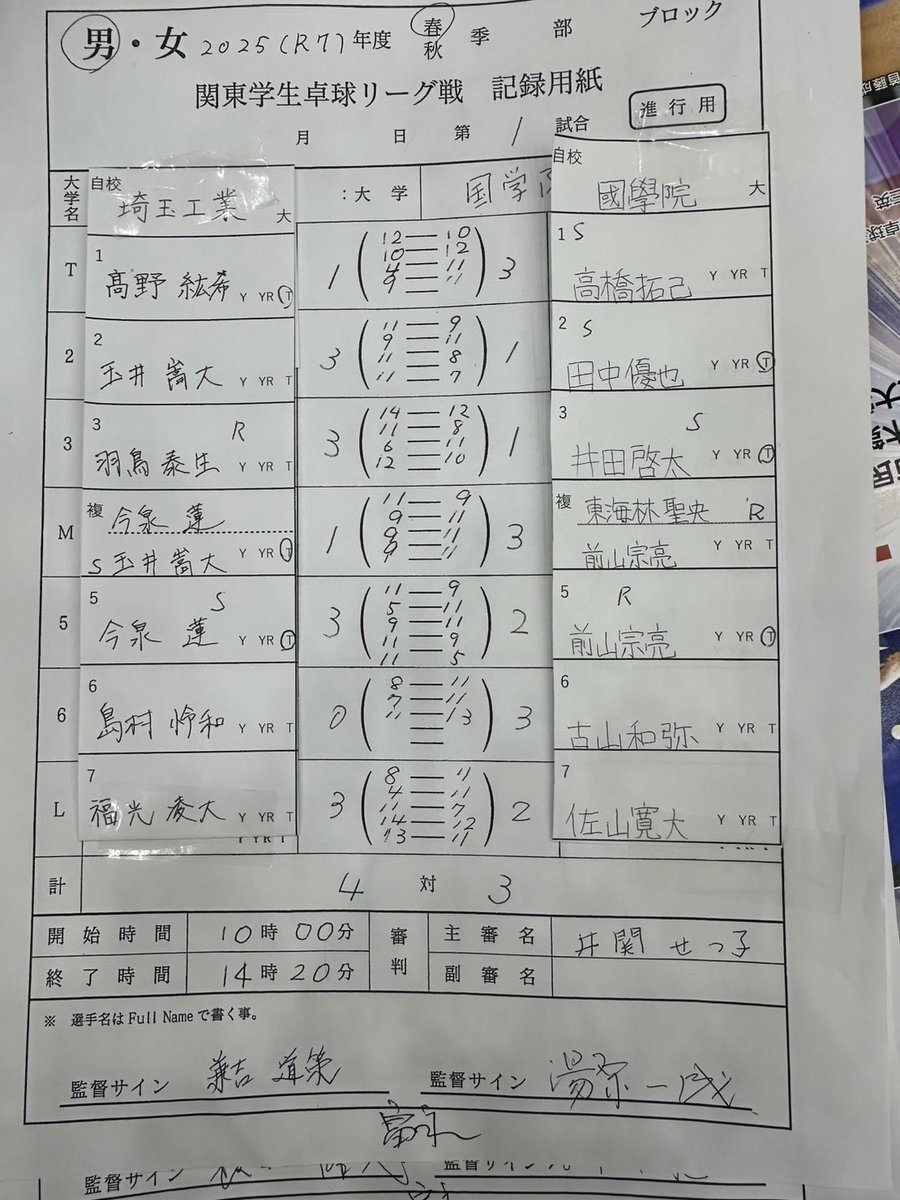 男・女 2025(R7)年度 春 秋 季 部 ブロック
関東学生卓球リーグ戦 記録用紙
進行用
月 日 第 1 試合
大学名 自校 埼玉工業 大 :大学 国学 自校 國學院 大
T 1 髙野 紘希 Y YR T 1 3 1 S 高橋拓己 Y YR T
12 — 10
10 — 12
4 — 11
9 — 11
2 2 玉井 嵩大 Y YR T 3 1 2 S 田中優也 Y YR T
11 — 9
9 — 11
11 — 8
11 — 7
3 3 R 羽鳥 泰生 Y YR T 3 1 3 S 井田啓太 Y YR T
14 — 12
11 — 8
6 — 11
12 — 10
M 複 今泉 蓮 1 3 複 東海林聖央 R
S 玉井 嵩大 Y YR T 前山宗亮 Y YR T
11 — 9
9 — 11
9 — 11
9 — 11
5 5 S 今泉 蓮 Y YR T 3 2 5 R 前山宗亮 Y YR T
11 — 9
5 — 11
9 — 11
11 — 9
11 — 5
6 6 島村 怜和 Y YR T 0 3 6 古山和弥 Y YR T
8 — 11
7 — 11
11 — 13
L 7 福光 凌大 Y YR T 3 2 7 佐山寛大 Y YR T
8 — 11
4 — 11
11 — 7
14 — 12
13 — 11
計 4 対 3
開始時間 10時 00分 審判 主審名 井関 せつ子
終了時間 14時 20分 副審名
※ 選手名はFull Nameで書く事。
監督サイン 監督サイン
監督サイン 監督サイン